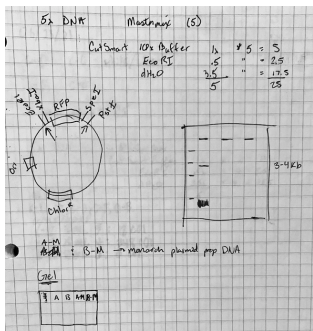 5x DNA Mastermix (5)
CutSmart 10x Buffer 1x * 5 = 5
EcoRI .5 " = 2.5
dH2O 3.5 " = 17.5
5 25
EcoRI
XbaI
RFP
SpeI
PstI
Ori
Chlor R
3-4Kb
A-M
& B-M → monarch plasmid prep DNA
Gel
A B A-M B-M